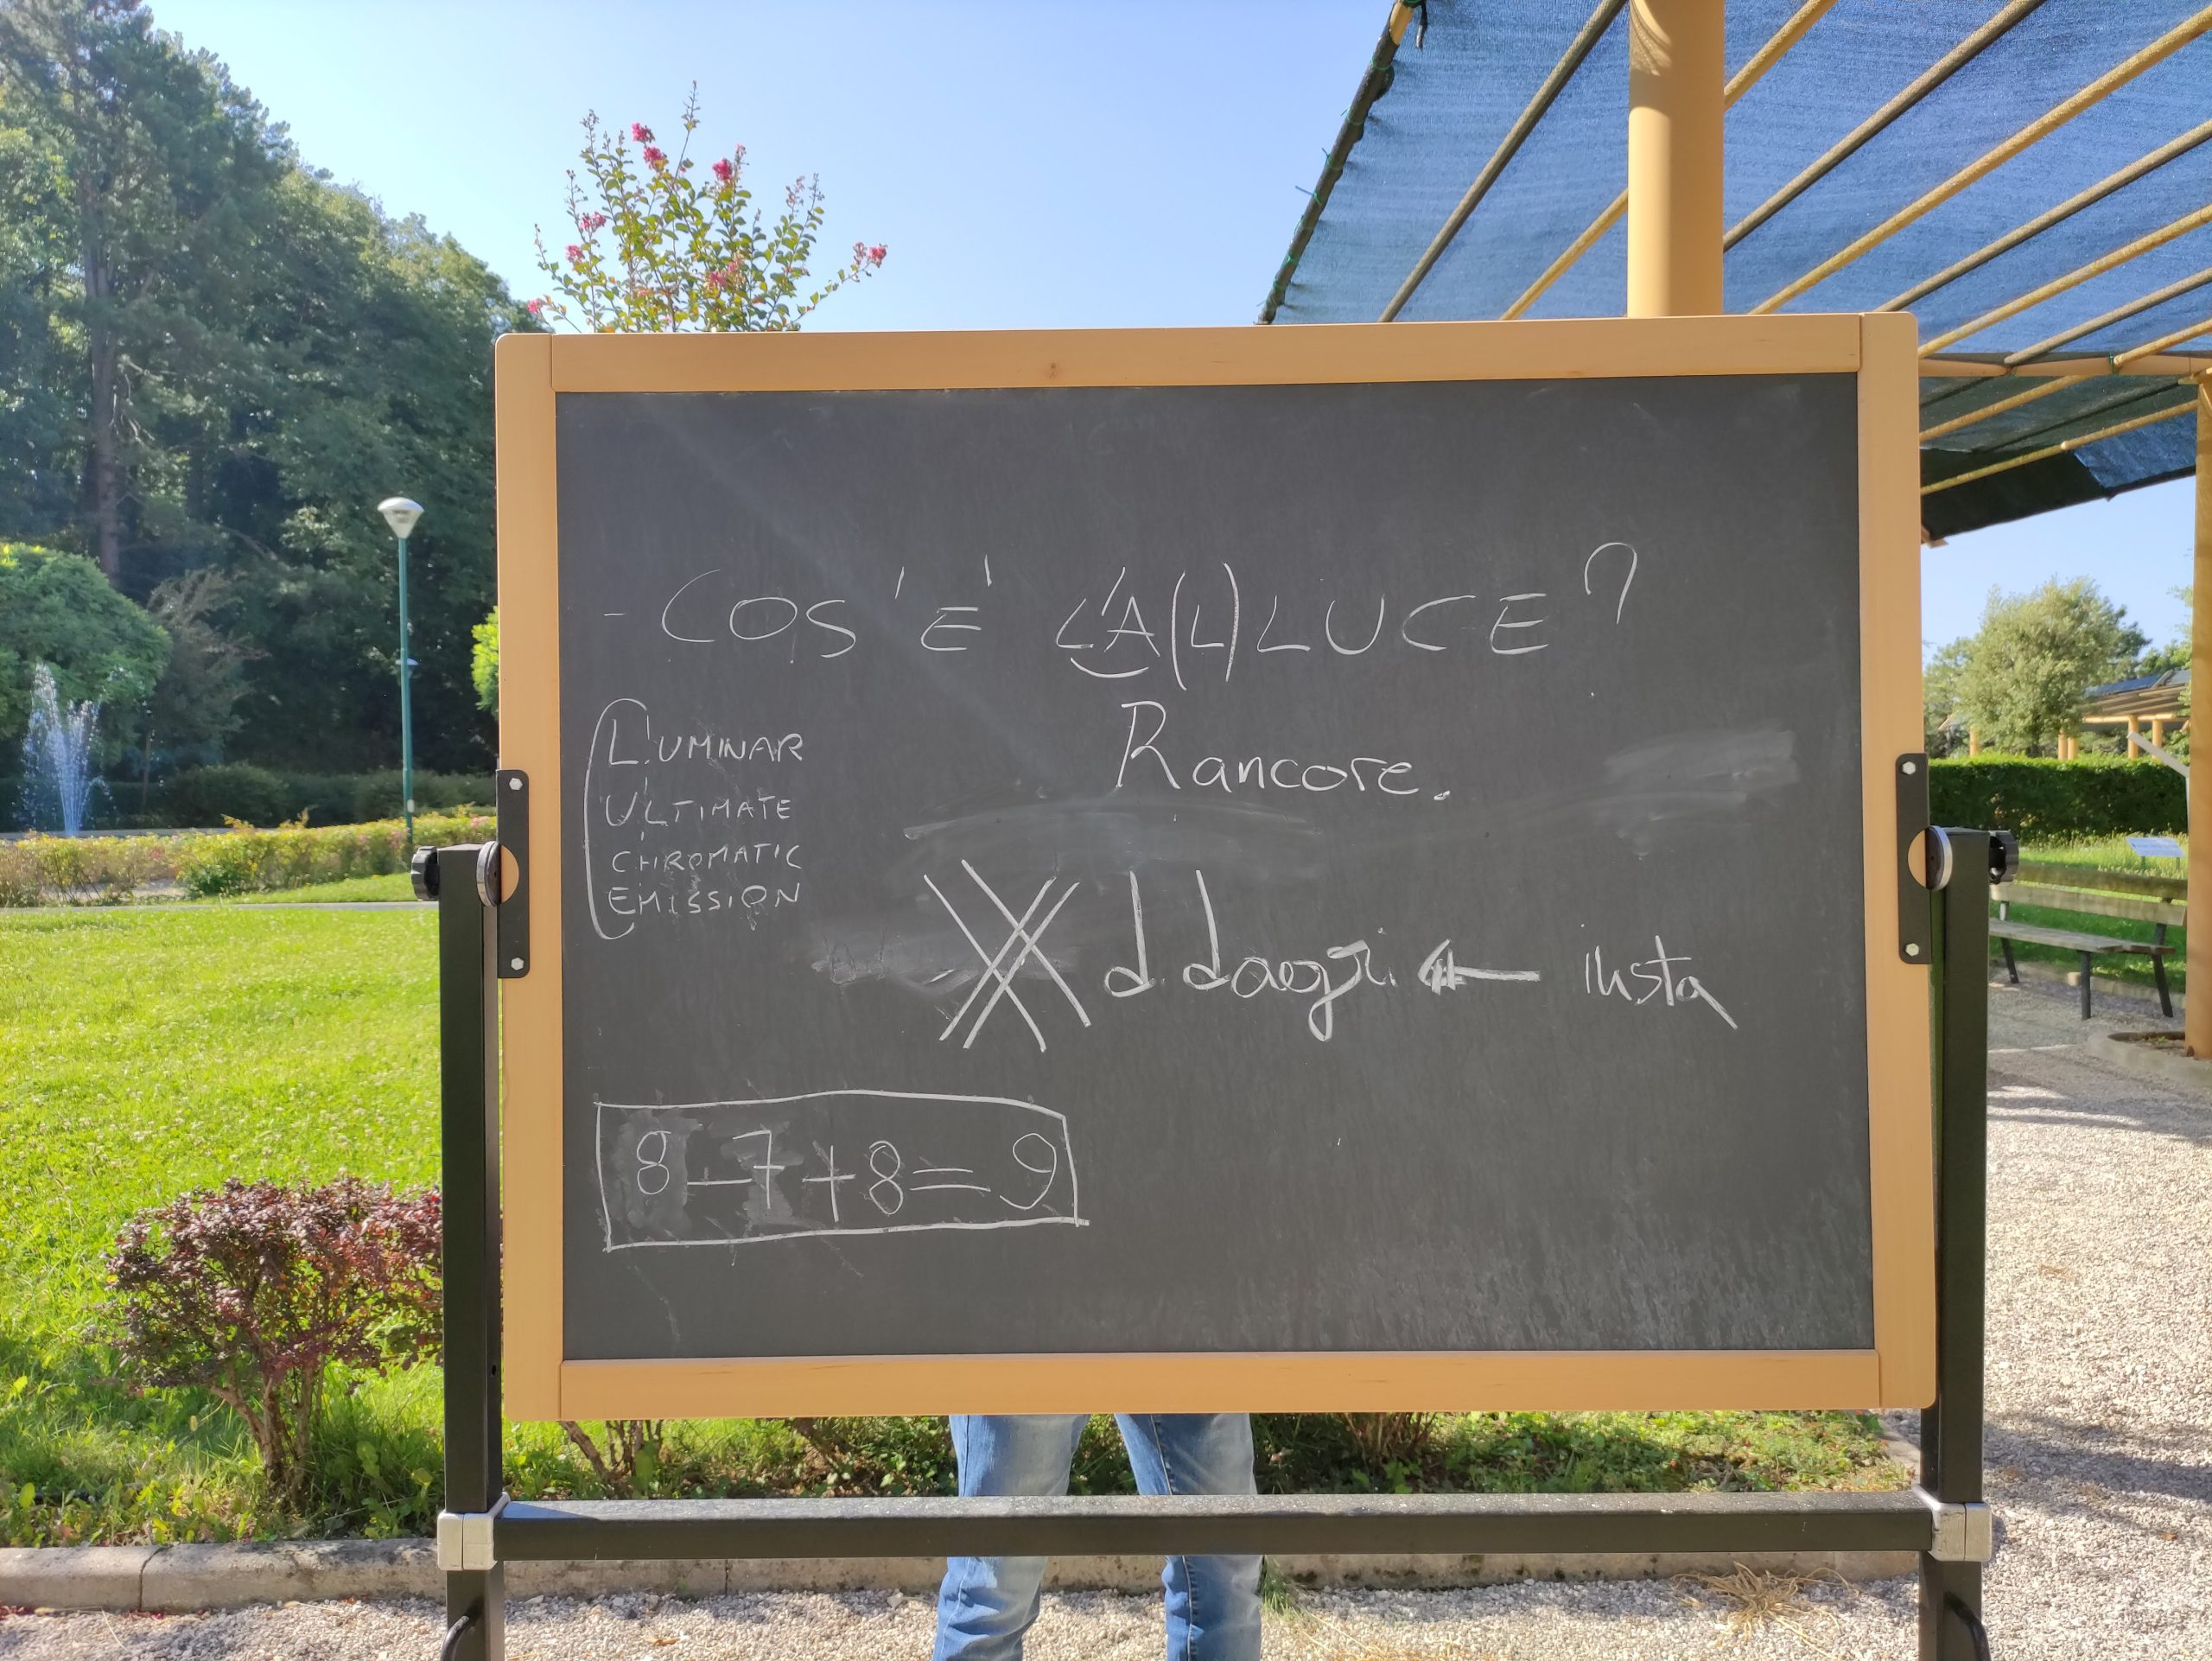 - COS'E' L'A(L)LUCE?
Rancore.
LUMINAR
ULTIMATE
CHROMATIC
EMISSION
insta
8-7+8=9